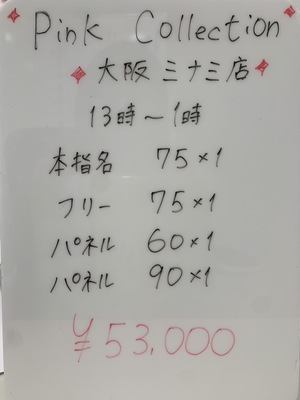 Pink Collection
大阪ミナミ店
13時~1時
本指名 75×1
フリー 75×1
パネル 60×1
パネル 90×1
¥53.000